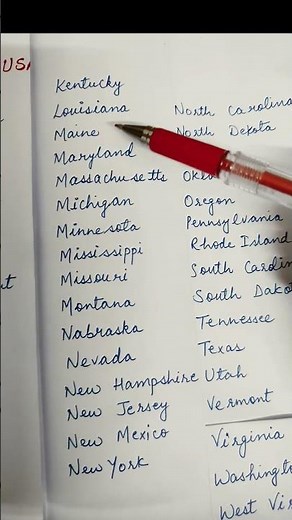 USA
Kentucky
Louisiana
Maine
Maryland
Massachusetts
Michigan
Minnesota
Mississippi
Missouri
Montana
Nabraska
Nevada
New Hampshire
New Jersey
New Mexico
New York
North Carolina
North Dekota
Oregon
Pennsylvania
Rhode Island
South Carolin
South Dako
Tennessee
Texas
Utah
Vermont
Virginia
Washingto
West Vir